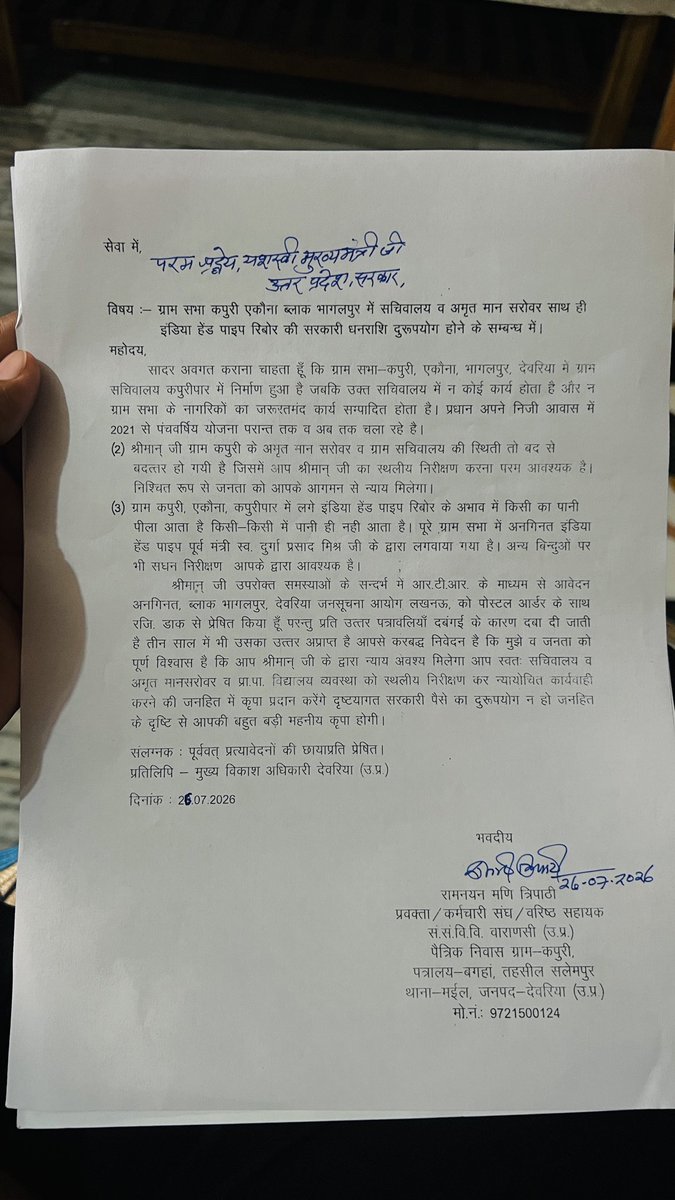 सेवा में,
परम श्रद्धेय, यशस्वी, मुख्यमंत्री जी
उत्तर प्रदेश, सरकार,
विषय :– ग्राम सभा कपुरी एकौना ब्लाक भागलपुर में सचिवालय व अमृत मान सरोवर साथ ही
इंडिया हेंड पाइप रिबोर की सरकारी धनराशि दुरूपयोग होने के सम्बन्ध में।
महोदय,
सादर अवगत कराना चाहता हूँ कि ग्राम सभा–कपुरी, एकौना, भागलपुर, देवरिया में ग्राम
सचिवालय कपुरीपार में निर्माण हुआ है जबकि उक्त सचिवालय में न कोई कार्य होता है और न
ग्राम सभा के नागरिकों का जरूरतमंद कार्य सम्पादित होता है। प्रधान अपने निजी आवास में
2021 से पंचवर्षिय योजना परान्त तक व अब तक चला रहे है।
(2) श्रीमान् जी ग्राम कपुरी के अमृत मान सरोवर व ग्राम सचिवालय की स्थिती तो बद से
बदत्तर हो गयी है जिसमें आप श्रीमान् जी का स्थलीय निरीक्षण करना परम आवश्यक है।
निश्चित रूप से जनता को आपके आगमन से न्याय मिलेगा।
(3) ग्राम कपुरी, एकौना, कपुरीपार में लगे इंडिया हेंड पाइप रिबोर के अभाव में किसी का पानी
पीला आता है किसी–किसी में पानी ही नही आता है। पूरे ग्राम सभा में अनगिनत इंडिया
हेंड पाइप पूर्व मंत्री स्व. दुर्गा प्रसाद मिश्र जी के द्वारा लगवाया गया है। अन्य बिन्दुओं पर
भी सघन निरीक्षण आपके द्वारा आवश्यक है।
श्रीमान् जी उपरोक्त समस्याओं के सन्दर्भ में आर.टी.आर. के माध्यम से आवेदन
अनगिनत, ब्लाक भागलपुर, देवरिया जनसूचना आयोग लखनऊ, को पोस्टल आर्डर के साथ
रजि. डाक से प्रेषित किया हूँ परन्तु प्रति उत्तर पत्रावलियाँ दबंगई के कारण दबा दी जाती
है तीन साल में भी उसका उत्तर अप्राप्त है आपसे करबद्ध निवेदन है कि मुझे व जनता को
पूर्ण विश्वास है कि आप श्रीमान् जी के द्वारा न्याय अवश्य मिलेगा आप स्वतः सचिवालय व
अमृत मानसरोवर व प्रा.पा. विद्यालय व्यवस्था को स्थलीय निरीक्षण कर न्यायोचित कार्यवाही
करने की जनहित में कृपा प्रदान करेंगे दृष्टयागत सरकारी पैसे का दुरूपयोग न हो जनहित
के दृष्टि से आपकी बहुत बड़ी महनीय कृपा होगी।
संलग्नक : पूर्ववत् प्रत्यावेदनों की छायाप्रति प्रेषित।
प्रतिलिपि – मुख्य विकाश अधिकारी देवरिया (उ.प्र.)
दिनांक : 26.07.2026
भवदीय
26-07-2026
रामनयन मणि त्रिपाठी
प्रवक्ता/कर्मचारी संघ/वरिष्ठ सहायक
सं.सं.वि.वि. वाराणसी (उ.प्र.)
पैत्रिक निवास ग्राम–कपुरी,
पत्रालय–बगहां, तहसील सलेमपुर
थाना–मईल, जनपद–देवरिया (उ.प्र.)
मो.नं.: 9721500124